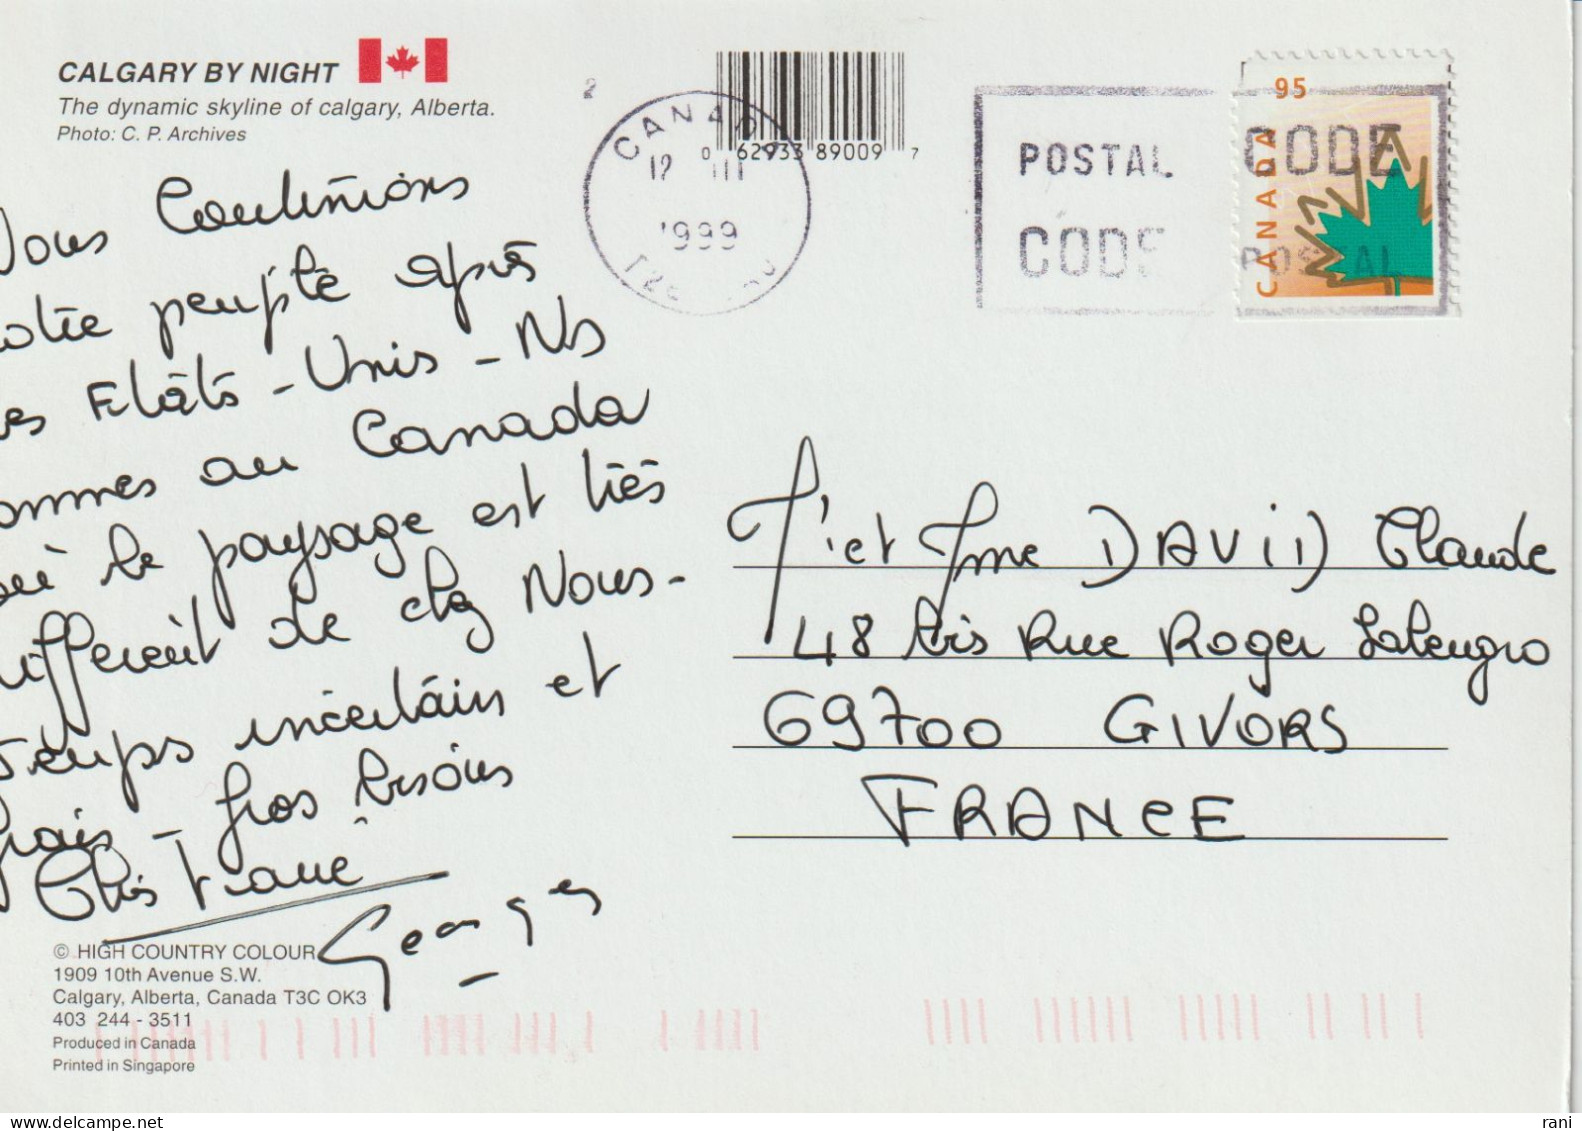 CALGARY BY NIGHT
The dynamic skyline of calgary, Alberta.
Photo: C. P. Archives
Nous Continuons
notre périple après
les Etâts-Unis - Ns
sommes au Canada
où le paysage est très
différent de chez Nous -
Temps incertain et
frais - gros bisous
Christiane
Georges
© HIGH COUNTRY COLOUR
1909 10th Avenue S.W.
Calgary, Alberta, Canada T3C OK3
403 244 - 3511
Produced in Canada
Printed in Singapore
2
CANADA
12 III
1999
0 62933 89009 7
POSTAL CODE
CODE POSTAL
95
CANADA
et Mme DAViD Claude
48 bis Rue Roger Salengro
69700 GIVORS
FRANCE
rani